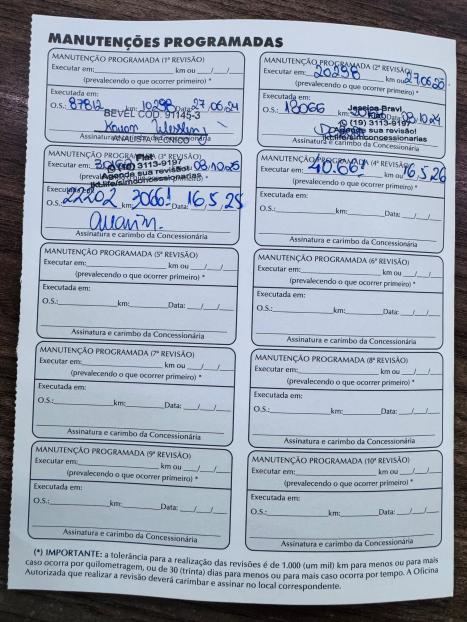 MANUTENÇÕES PROGRAMADAS
MANUTENÇÃO PROGRAMADA (1ª REVISÃO)
Executar em: km ou / /
(prevalecendo o que ocorrer primeiro) *
Executada em:
O.S.: 87812 km: 10298 Data: 27/06/24
BEVEL COD. 91145-3
ANALISTA TÉCNICO
MANUTENÇÃO PROGRAMADA (2ª REVISÃO)
Executar em: 20298 km ou 27/06/25
(prevalecendo o que ocorrer primeiro) *
Executada em:
O.S.: Data: /10/24
Fiat
(19) 3113-9197
Agende sua revisão!
MANUTENÇÃO PROGRAMADA (3ª REVISÃO)
Executar em: km ou 08/10/25
Fiat
(19) 3113-9197
Agende sua revisão!
O.S.: 22202 km: 30661 Data: 16/5/25
Assinatura e carimbo da Concessionária
MANUTENÇÃO PROGRAMADA (4ª REVISÃO)
Executar em: 40.661 km ou 16/5/26
(prevalecendo o que ocorrer primeiro) *
Executada em:
O.S.: km: Data: / /
Assinatura e carimbo da Concessionária
MANUTENÇÃO PROGRAMADA (5ª REVISÃO)
Executar em: km ou / /
(prevalecendo o que ocorrer primeiro) *
Executada em:
O.S.: km: Data: / /
Assinatura e carimbo da Concessionária
MANUTENÇÃO PROGRAMADA (6ª REVISÃO)
Executar em: km ou / /
(prevalecendo o que ocorrer primeiro) *
Executada em:
O.S.: km: Data: / /
Assinatura e carimbo da Concessionária
MANUTENÇÃO PROGRAMADA (7ª REVISÃO)
Executar em: km ou / /
(prevalecendo o que ocorrer primeiro) *
Executada em:
O.S.: km: Data: / /
Assinatura e carimbo da Concessionária
MANUTENÇÃO PROGRAMADA (8ª REVISÃO)
Executar em: km ou / /
(prevalecendo o que ocorrer primeiro) *
Executada em:
O.S.: km: Data: / /
Assinatura e carimbo da Concessionária
MANUTENÇÃO PROGRAMADA (9ª REVISÃO)
Executar em: km ou / /
(prevalecendo o que ocorrer primeiro) *
Executada em:
O.S.: km: Data: / /
Assinatura e carimbo da Concessionária
MANUTENÇÃO PROGRAMADA (10ª REVISÃO)
Executar em: km ou / /
(prevalecendo o que ocorrer primeiro) *
Executada em:
O.S.: km: Data: / /
Assinatura e carimbo da Concessionária
(*) IMPORTANTE: a tolerância para a realização das revisões é de 1.000 (um mil) km para menos ou para mais
caso ocorra por quilometragem, ou de 30 (trinta) dias para menos ou para mais caso ocorra por tempo. A Oficina
Autorizada que realizar a revisão deverá carimbar e assinar no local correspondente.